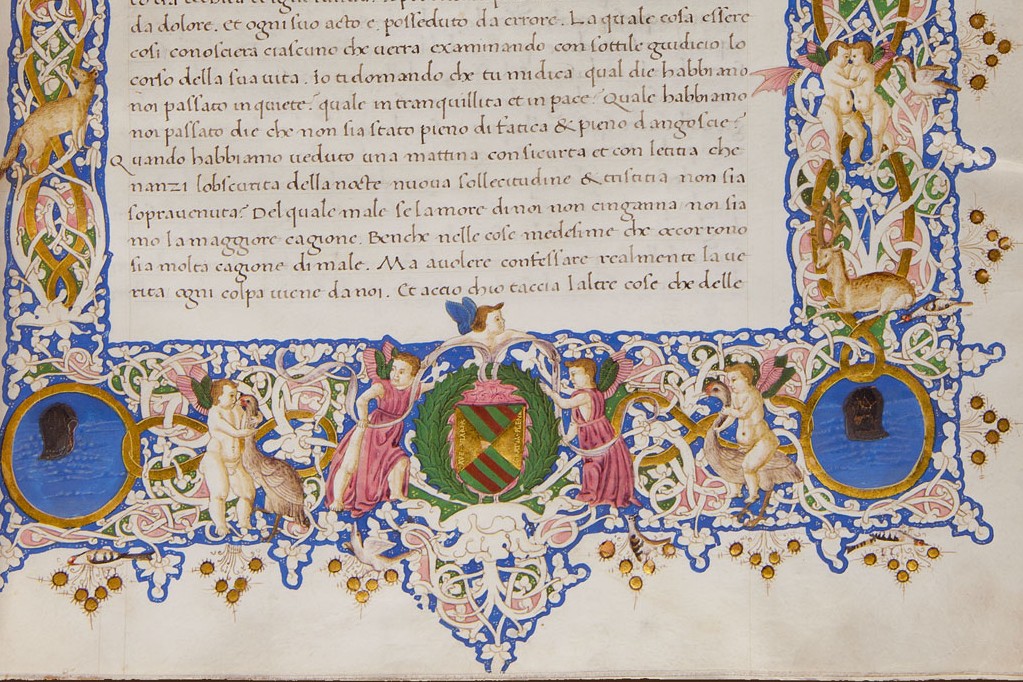 da dolore. Et ogni suo acto e, posseduto da errore. La quale cosa essere
cosi conosciera ciascuno che verra examinando con sottile giudicio lo
corso della sua vita. Io ti domando che tu mi dica qual die habbiamo
noi passato in quiete? quale in tranquillita et in pace? Quale habbiamo
noi passato die che non sia stato pieno di fatica & pieno dangoscie?
Quando habbiamo veduto una mattina con sicurta et con letitia che
nanzi lobscurita della nocte nuova sollecitudine & tristitia non sia
sopravenuta? Del quale male se lamore di noi non cinganna noi sia
mo la maggiore cagione. Benche nelle cose medesime che occorrono
sia molta cagione di male. Ma avolere confessare realmente la ve
rita ogni colpa viene da noi. Et accio chio taccia laltre cose che delle